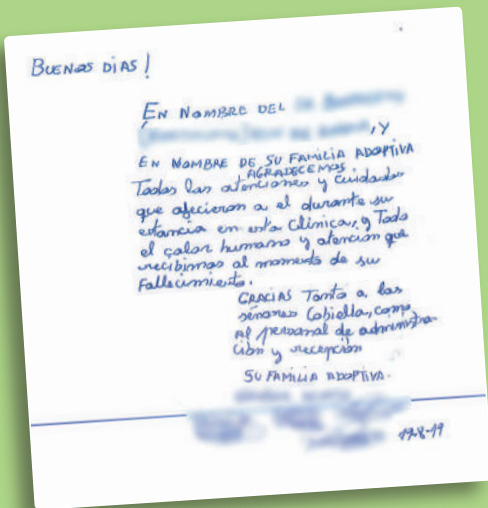 BUENOS DIAS!
EN NOMBRE DEL
, Y
EN NOMBRE DE SU FAMILIA ADOPTIVA
AGRADECEMOS.
Todas las atenciones y cuidados
que ofecieron a el durante su
estancia en esta Clinica, y Todo
el calor humano y atencion que
recibimos al momento de su
Fallecimiento.
GRACIAS Tanto a las
señoras Cobiella, como
Al personal de administra-
ción y recepción
SU FAMILIA ADOPTIVA.
19-8-19